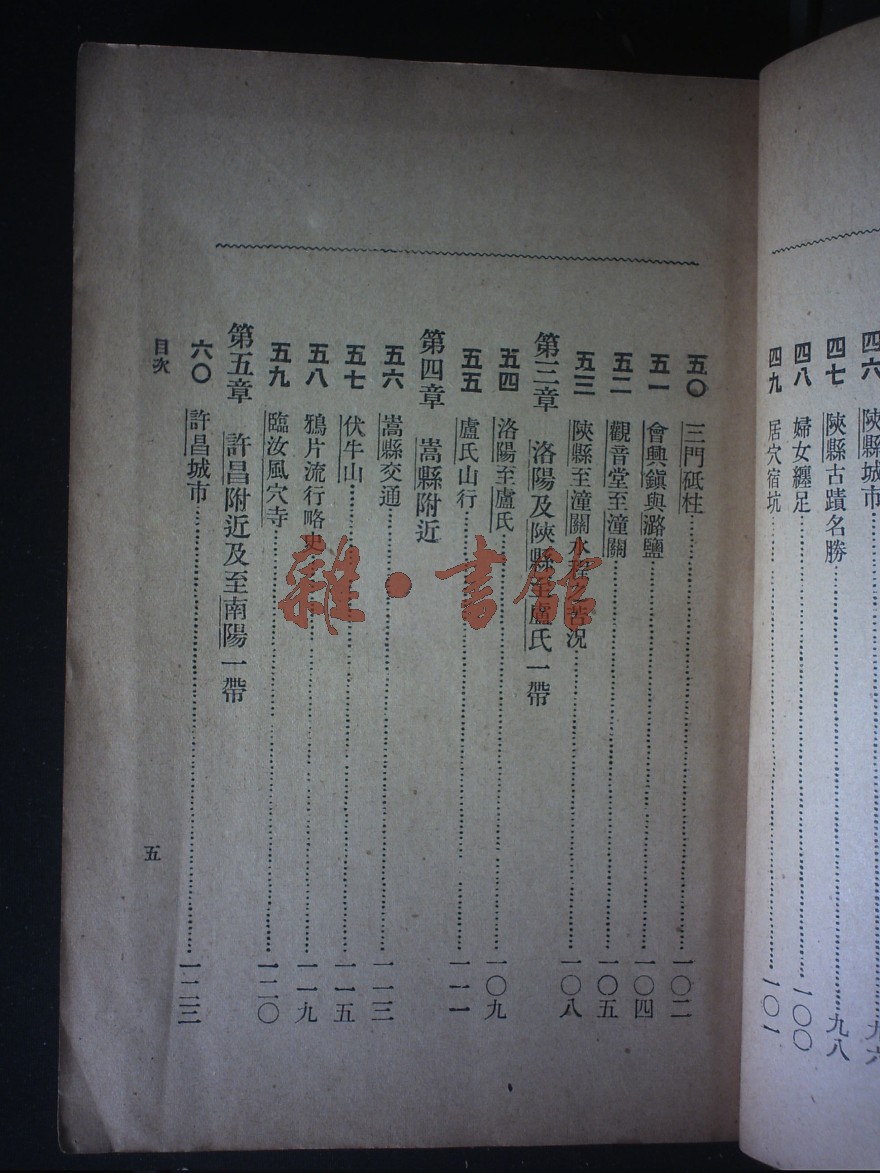 四六 陝縣城市 九六
四七 陝縣古蹟名勝 九八
四八 婦女纏足 一〇〇
四九 居穴宿坑 一〇一
五〇 三門砥柱 一〇二
五一 會興鎭與潞鹽 一〇四
五二 觀音堂至潼關 一〇五
五三 陝縣至潼關水程之苦況 一〇八
第三章 洛陽及陝縣至盧氏一帶
五四 洛陽至盧氏 一〇九
五五 盧氏山行 一一一
第四章 嵩縣附近
五六 嵩縣交通 一一三
五七 伏牛山 一一五
五八 鴉片流行略史 一一九
五九 臨汝風穴寺 一二〇
第五章 許昌附近及至南陽一帶
六〇 許昌城市 一二三
目次 五
雜·書館